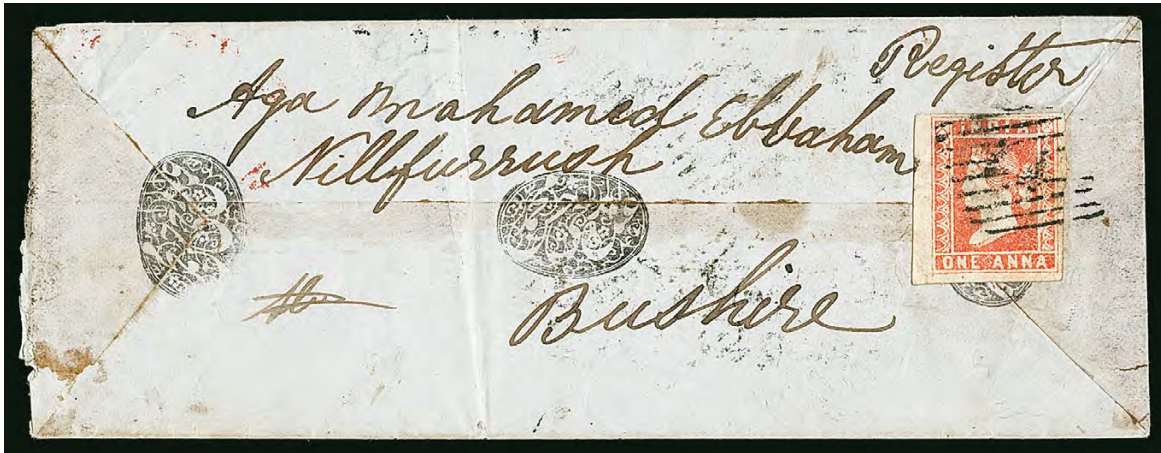 Register
Aga Mohamed Ebbaham
Nillyfurrush
Bushire
INDIA
ONE ANNA